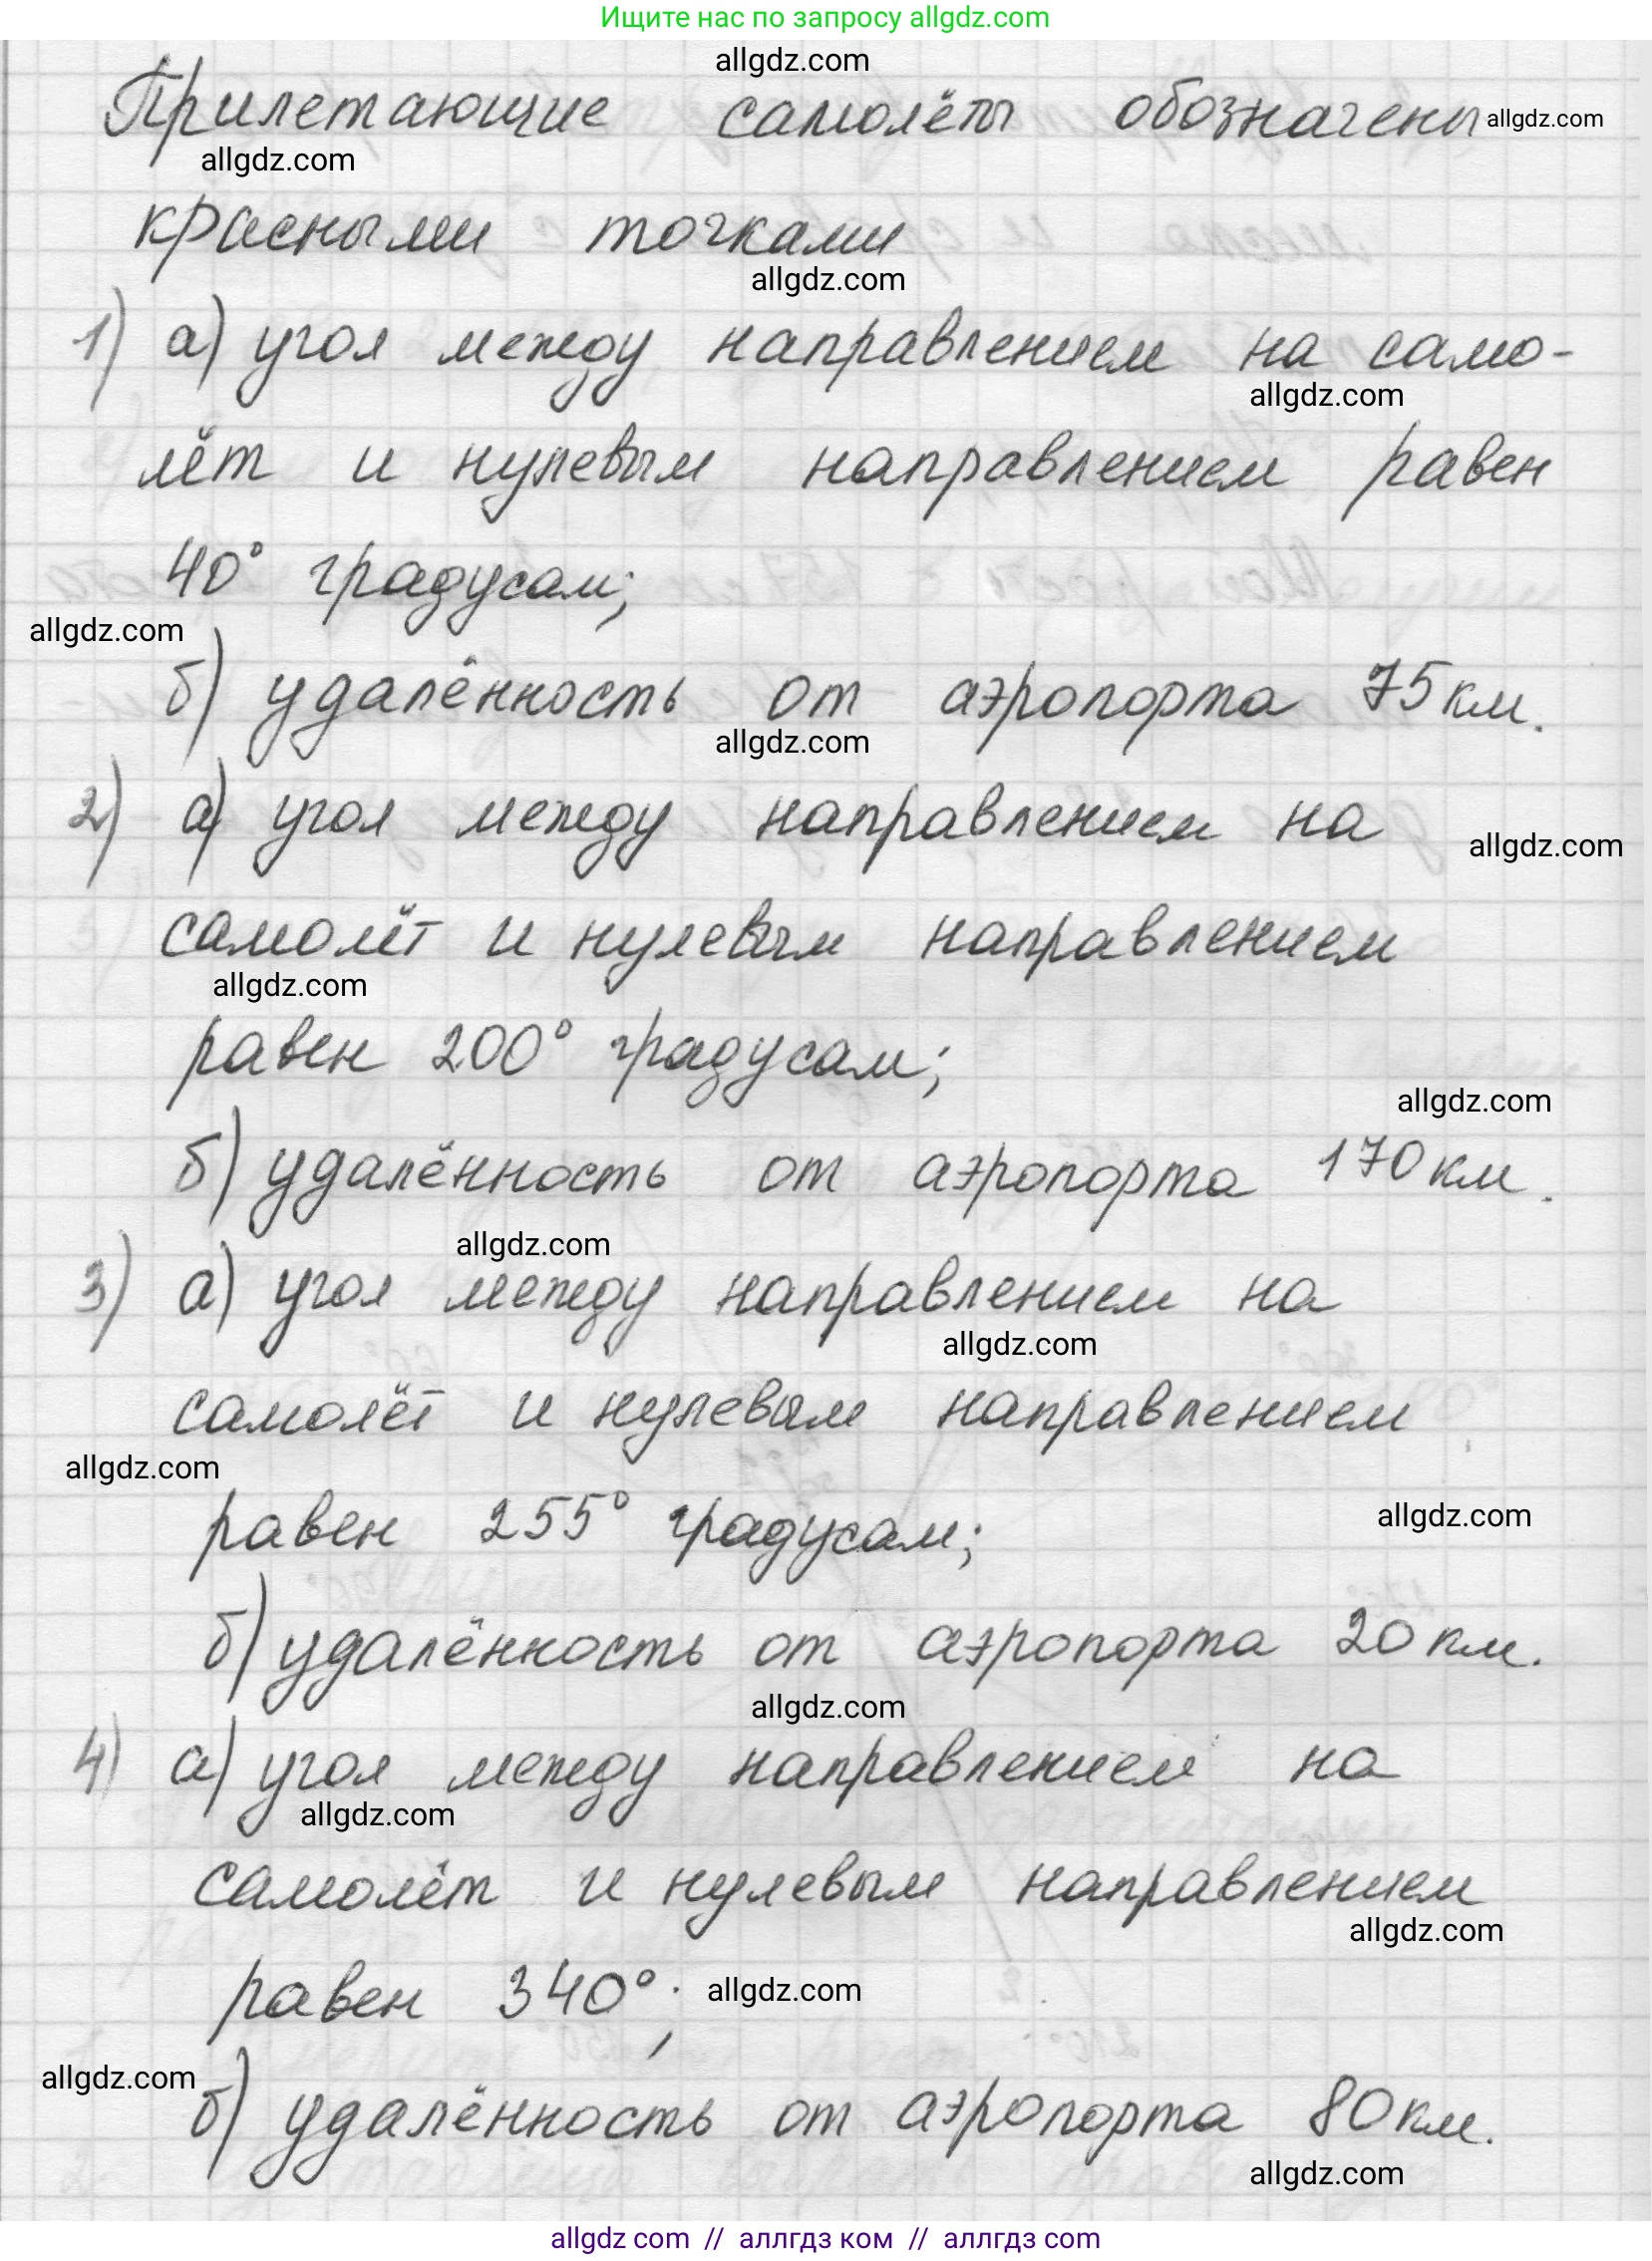 Ищите нас по запросу allgdz.com
allgdz.com
Прилетающие самолёты обозначены allgdz.com
allgdz.com
красными точками
allgdz.com
1) а) угол между направлением на само-
allgdz.com
лёт и нулевым направлением равен
40° градусам;
allgdz.com
б) удалённость от аэропорта 75 км.
allgdz.com
2) а) угол между направлением на
allgdz.com
самолёт и нулевым направлением
allgdz.com
равен 200° градусам;
allgdz.com
б) удалённость от аэропорта 170 км.
allgdz.com
3) а) угол между направлением на
allgdz.com
самолёт и нулевым направлением
allgdz.com
равен 255° градусам;
allgdz.com
б) удалённость от аэропорта 20 км.
allgdz.com
4) а) угол между направлением на
allgdz.com
самолёт и нулевым направлением
allgdz.com
равен 340°;
allgdz.com
allgdz.com
б) удалённость от аэропорта 80 км.
allgdz.com
allgdz.com // аллгдз ком // аллгдз.com